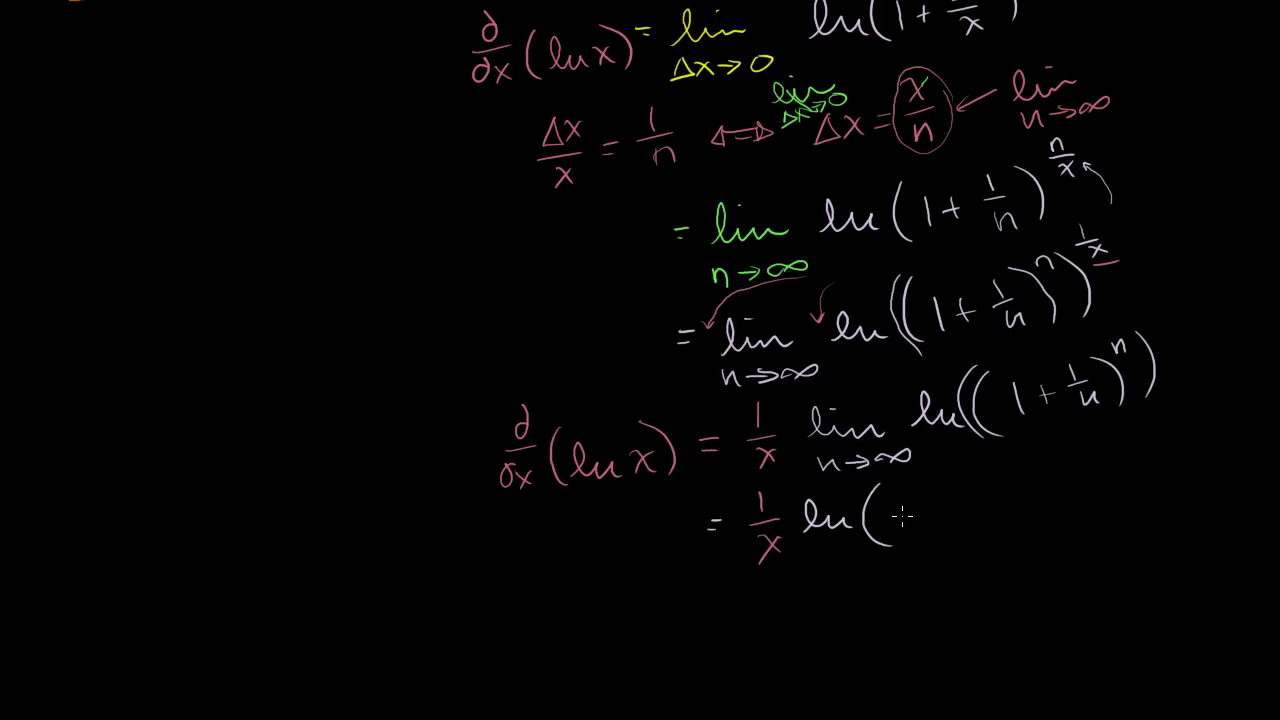 ∂/∂x (ln x) = lim Δx→0 ln(1 + /x )
Δx/x = 1/n ⟺ lim Δx→0 Δx = x/n ← lim n→∞
= lim n→∞ ln(1 + 1/n)^(n/x)
= lim n→∞ ln((1 + 1/n)^n)^(1/x)
∂/∂x (ln x) = 1/x lim n→∞ ln((1 + 1/n)^n)
= 1/x ln(